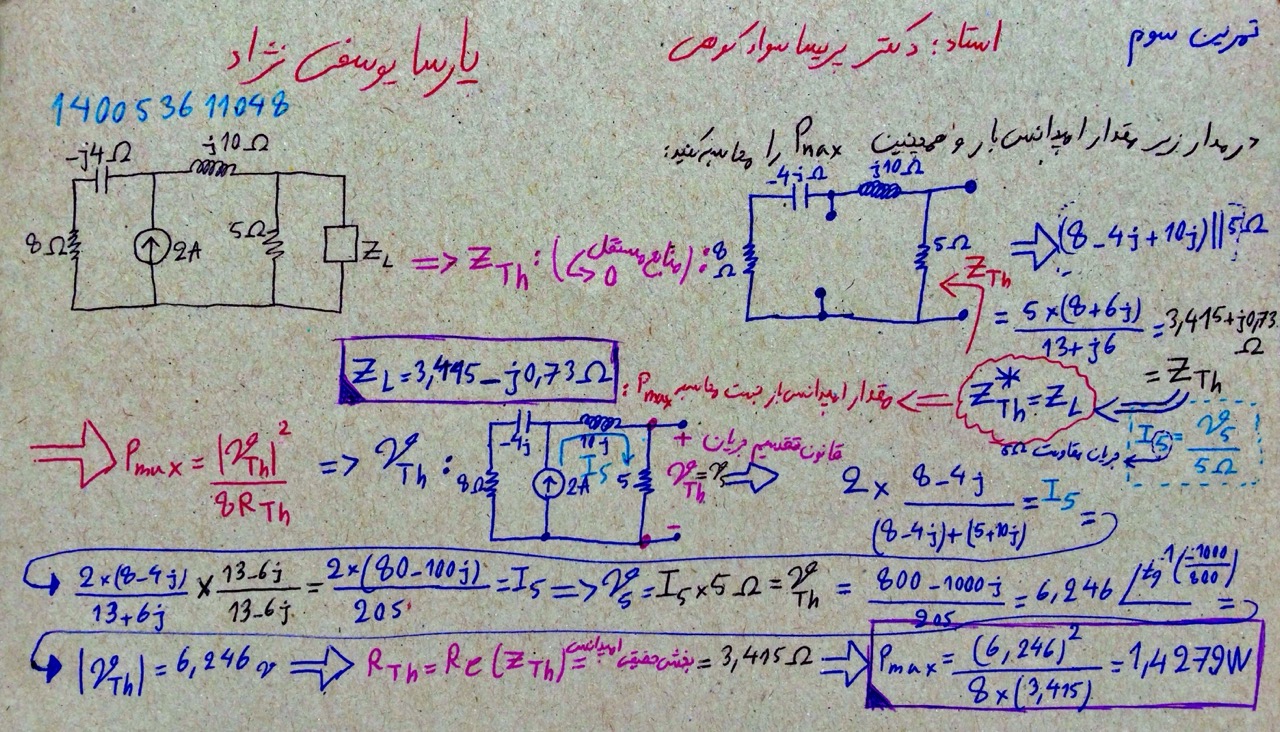 تمرین سوم
استاد: دکتر پریسا سواد کوهی
پارسا یوسفی نژاد
14005361048
در مدار زیر مقدار امپدانس بار و همچنین Pmax را محاسبه کنید:
-j4Ω j10Ω
8Ω 2A 5Ω ZL
=> ZTh : (منابع مستقل 0) :
-4j Ω j10Ω
8Ω 5Ω ZTh
=> (8-4j+10j)||5Ω
= 5×(8+6j) / 13+j6 = 3,415+j0,73 Ω
= ZTh
Z*Th = ZL
مقدار امپدانس بار جهت محاسبه Pmax :
ZL = 3,415 - j0,73 Ω
Pmax = |VTh|² / 8RTh
=> VTh :
-4j 10j
8Ω 2A I5 5
+ VTh = V5 -
قانون تقسیم جریان
2 × 8-4j / (8-4j)+(5+10j) = I5 =
I5 = V5 / 5Ω
جریان مقاومت 5Ω
2×(8-4j) / 13+6j × 13-6j / 13-6j = 2×(80-100j) / 205 = I5 => V5 = I5 × 5Ω = VTh = 800-1000j / 205 = 6,246 ∠tg⁻¹(-1000/800) =
|VTh| = 6,246 v => RTh = Re(ZTh) = بخش حقیقی امپدانس = 3,415Ω => Pmax = (6,246)² / 8×(3,415) = 1,4279W